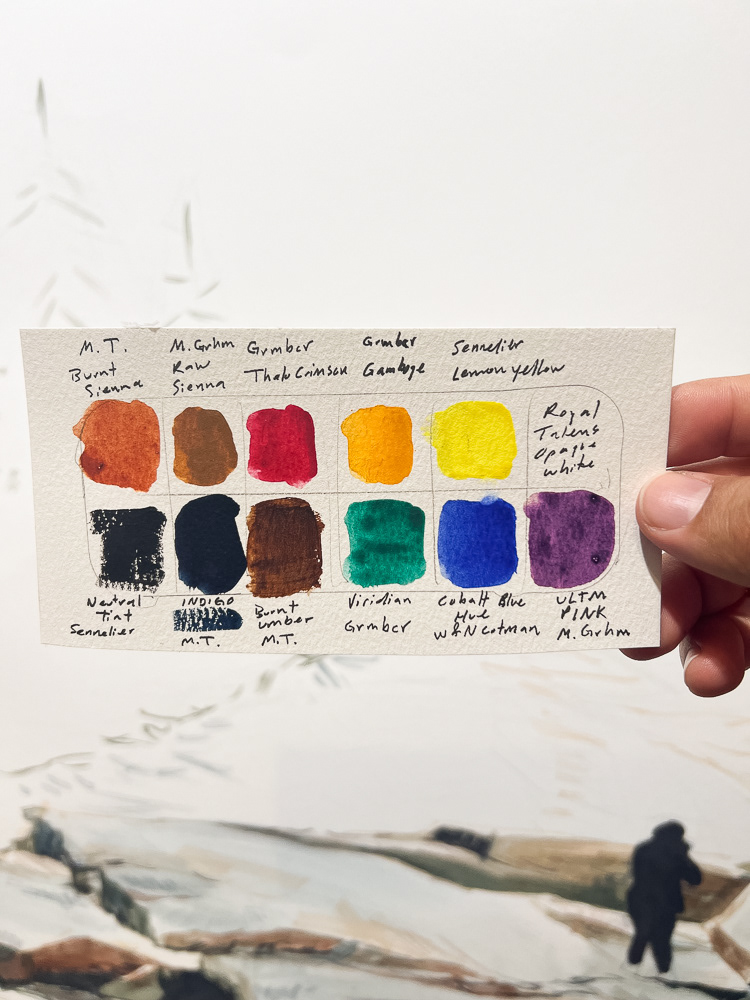 M.T.
Burnt
Sienna
M.Grhm
Raw
Sienna
Grmbcr
Thalo Crimson
Grmbcr
Gamboge
Sennelier
Lemon yellow
Royal
Talens
Opaque
white
Neutral
Tint
Sennelier
INDIGO
M.T.
Burnt
umber
M.T.
Viridian
Grmbcr
Cobalt Blue
Hue
W&N Cotman
ULTM
PINK
M. Grhm